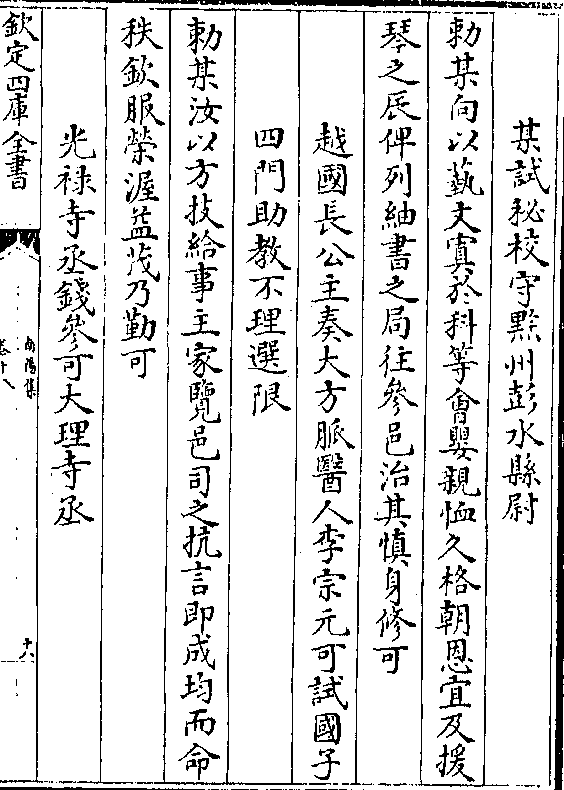 某試秘校守黔州彭水縣尉
勅某向以藝文寘於科等會嬰親恤久格朝恩宜及援
琴之辰俾列紬書之局往參邑治其慎身修可
越國長公主奏大方脈醫人李宗元可試國子
四門助教不理選限
勅某汝以方技給事主家覽邑司之抗言即成均而命
秩欽服榮渥益茂乃勤可
光祿寺丞錢參可大理寺丞
欽定四庫全書
南陽集
卷十八
十八